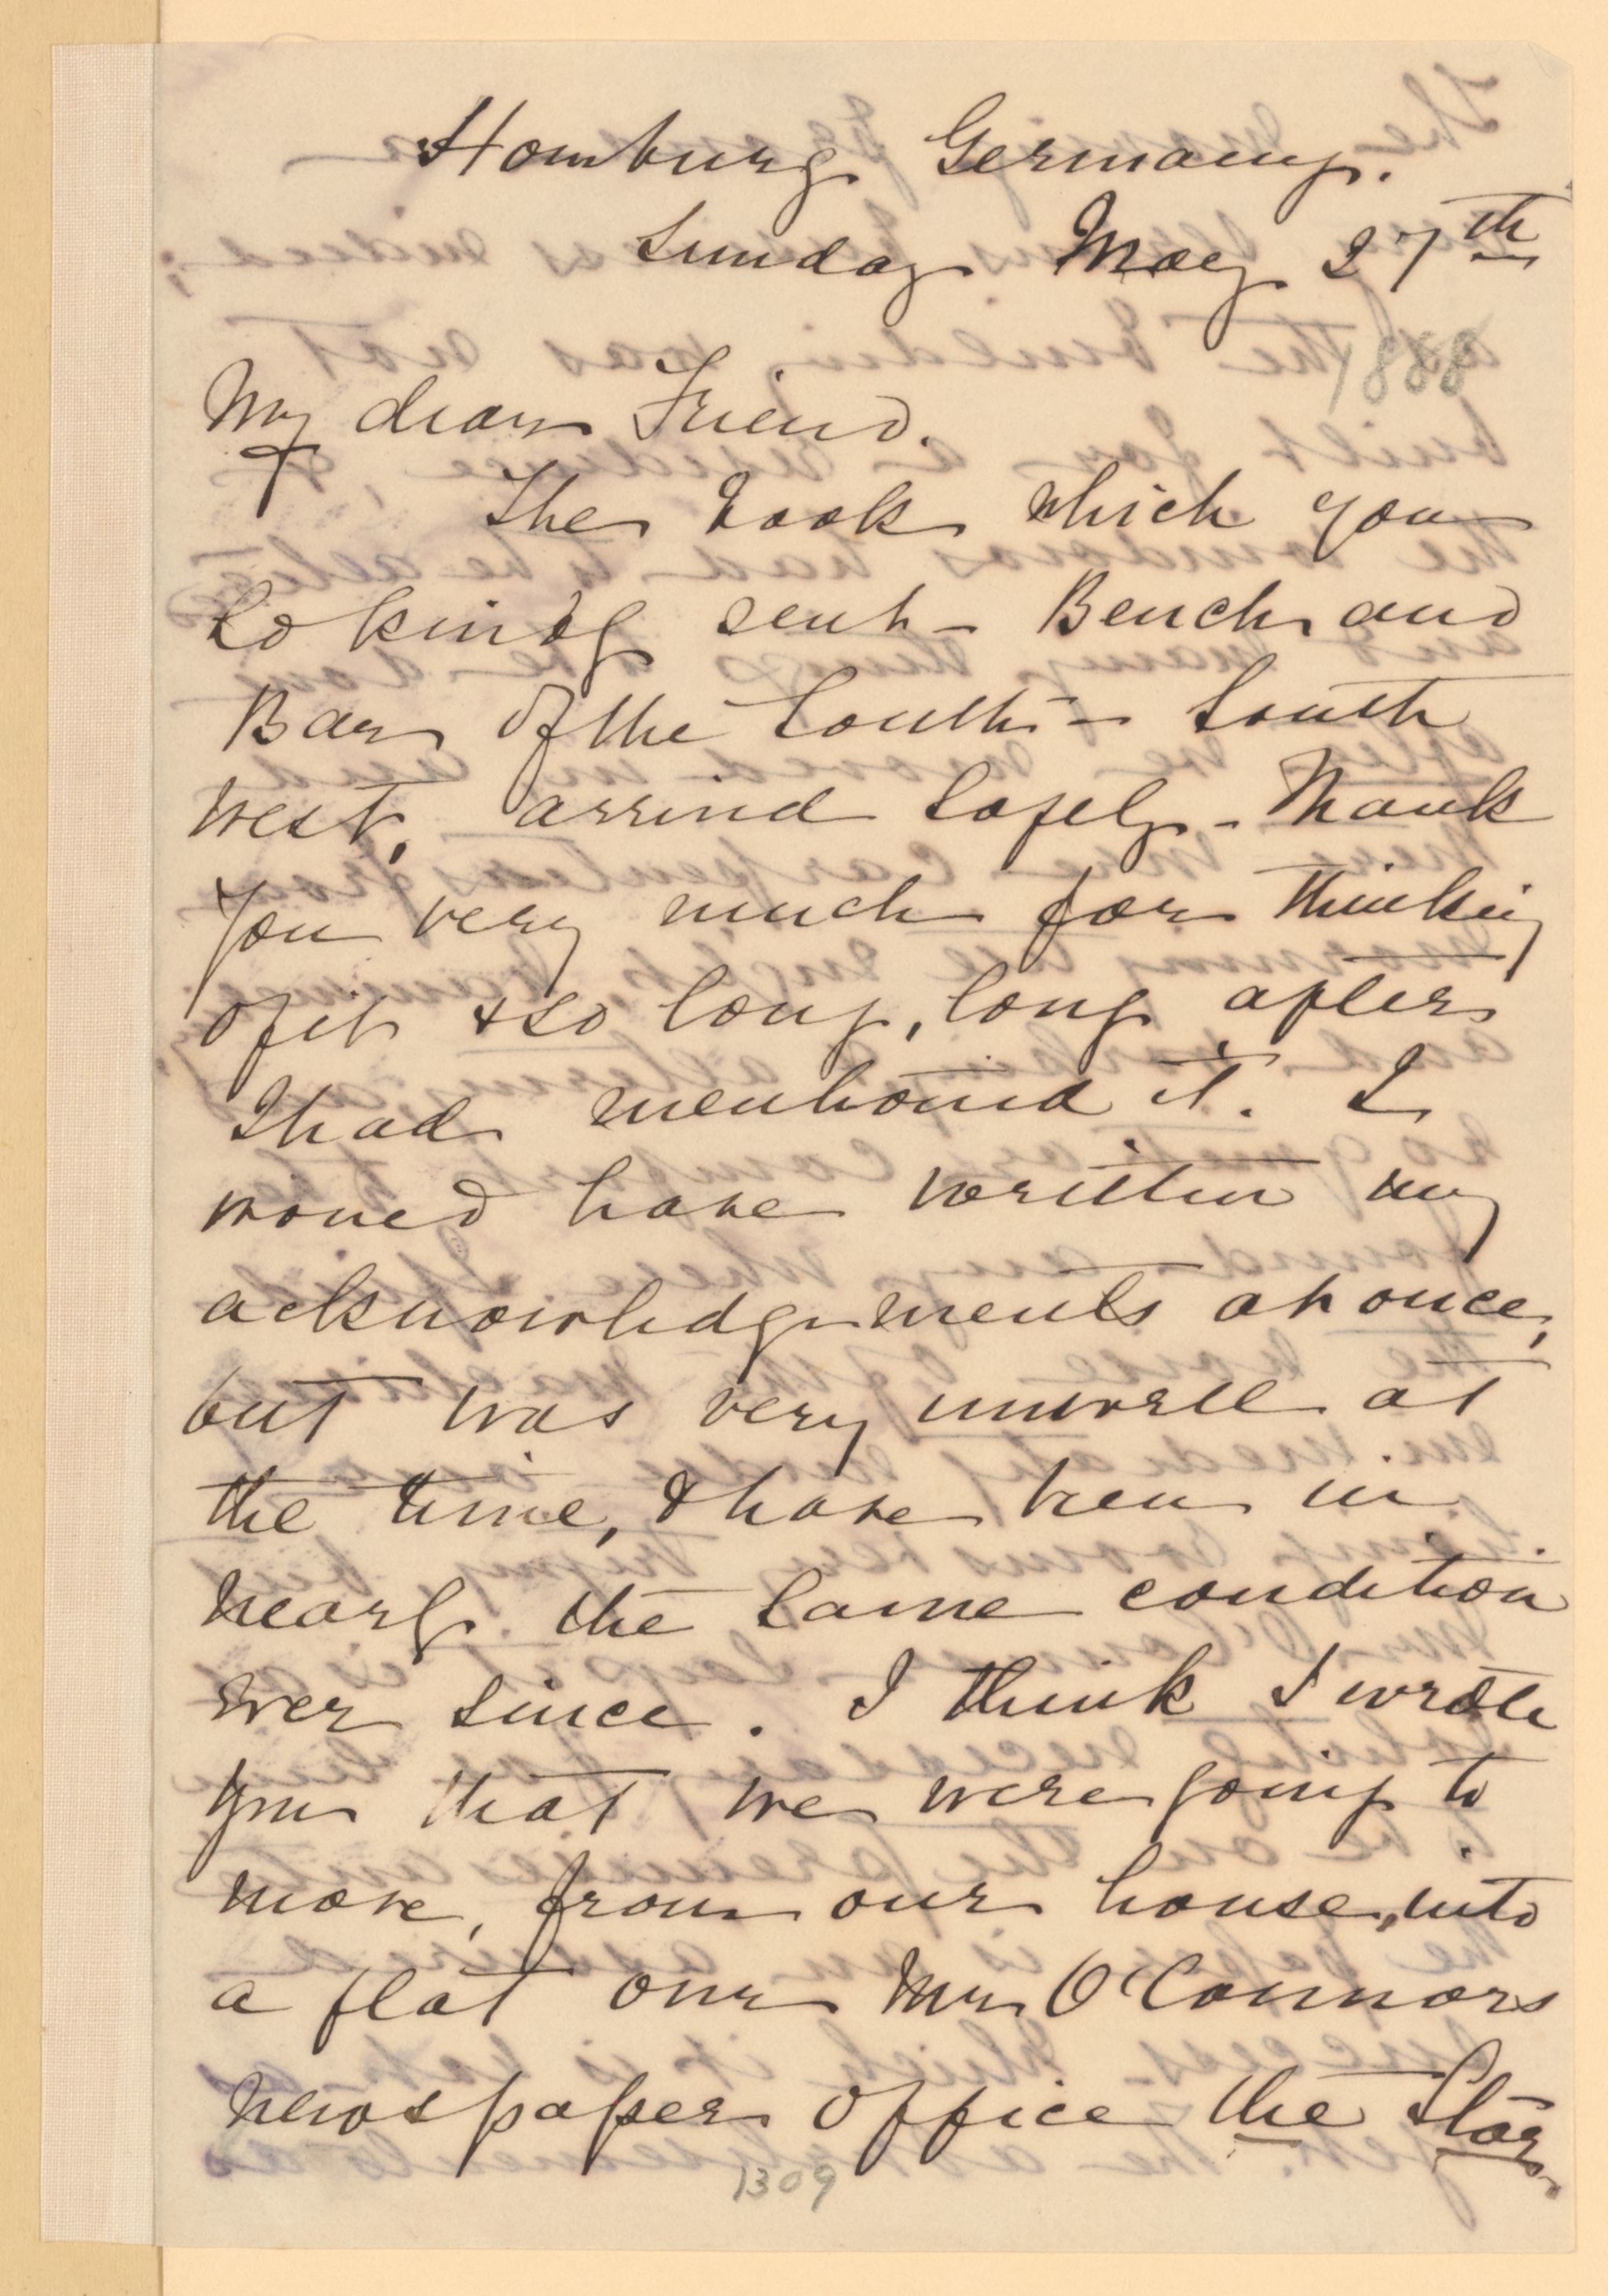 Homburg Germany.
Sunday May 27th
1888
My dear Friend.
The book which you
so kindly sent – Bench and
Bar of the South – South
west, arrived safely – Thank
you very much for thinking
of it & so long, long after
I had mentioned it. I
would have written my
acknowledgements at once,
but was very unwell at
the time, & have been in
nearly the same condition
ever since. I think I wrote
you that we were going to
move, from our house, into
a flat over Mr O'Connors
newspaper office the Star.
1309